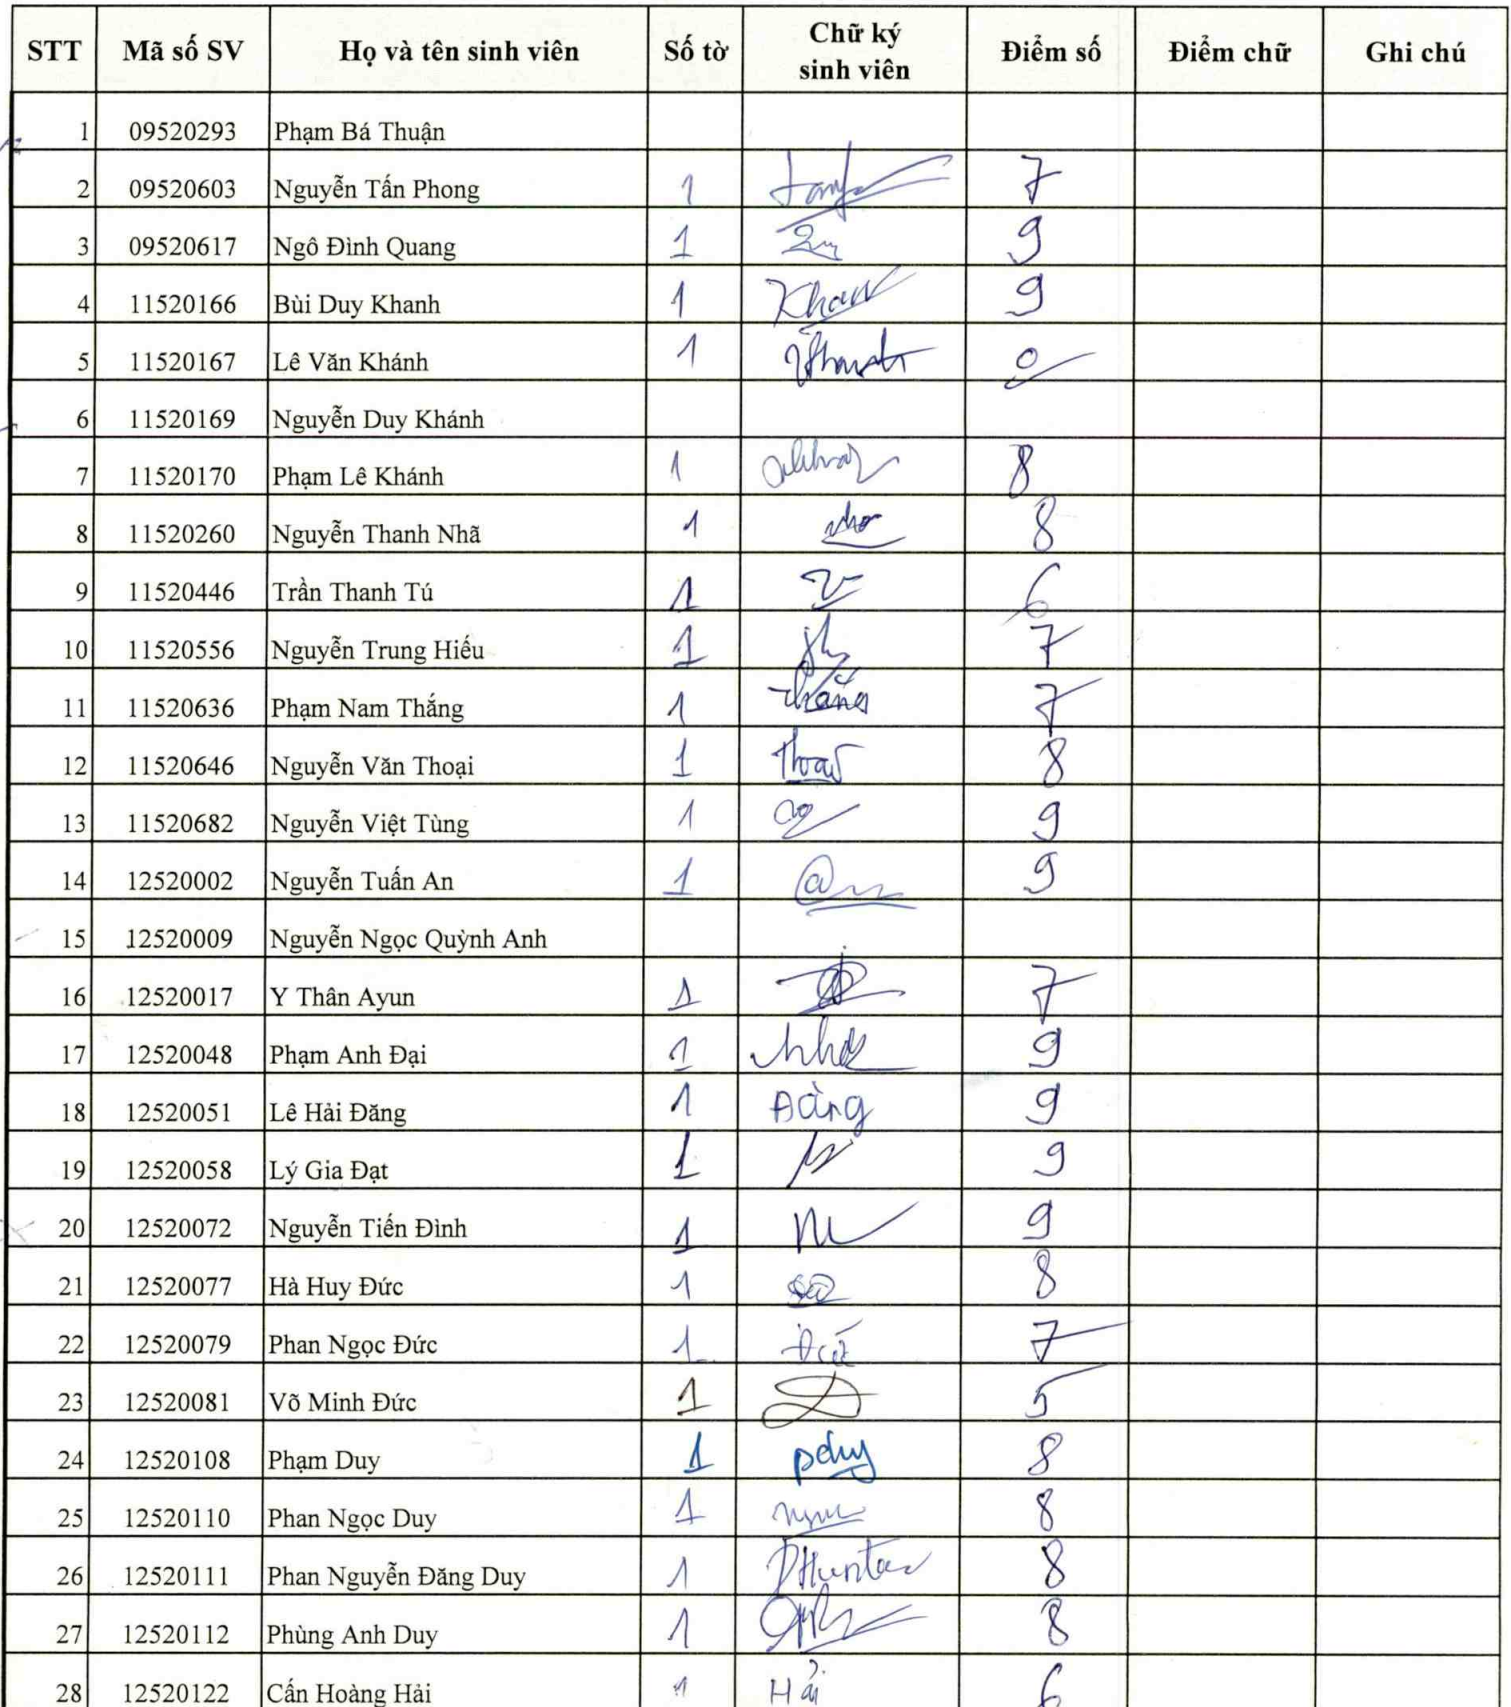 STT Mã số SV Họ và tên sinh viên Số tờ Chữ ký sinh viên Điểm số Điểm chữ Ghi chú
1 09520293 Phạm Bá Thuận
2 09520603 Nguyễn Tấn Phong 1 7
3 09520617 Ngô Đình Quang 1 9
4 11520166 Bùi Duy Khanh 1 9
5 11520167 Lê Văn Khánh 1 0
6 11520169 Nguyễn Duy Khánh
7 11520170 Phạm Lê Khánh 1 8
8 11520260 Nguyễn Thanh Nhã 1 8
9 11520446 Trần Thanh Tú 1 6
10 11520556 Nguyễn Trung Hiếu 1 7
11 11520636 Phạm Nam Thắng 1 Thắng 7
12 11520646 Nguyễn Văn Thoại 1 8
13 11520682 Nguyễn Việt Tùng 1 9
14 12520002 Nguyễn Tuấn An 1 9
15 12520009 Nguyễn Ngọc Quỳnh Anh
16 12520017 Y Thân Ayun 1 7
17 12520048 Phạm Anh Đại 1 9
18 12520051 Lê Hải Đăng 1 Đăng 9
19 12520058 Lý Gia Đạt 1 9
20 12520072 Nguyễn Tiến Đình 1 9
21 12520077 Hà Huy Đức 1 8
22 12520079 Phan Ngọc Đức 1 7
23 12520081 Võ Minh Đức 1 5
24 12520108 Phạm Duy 1 pduy 8
25 12520110 Phan Ngọc Duy 1 8
26 12520111 Phan Nguyễn Đăng Duy 1 8
27 12520112 Phùng Anh Duy 1 8
28 12520122 Cấn Hoàng Hải 1 Hải 6